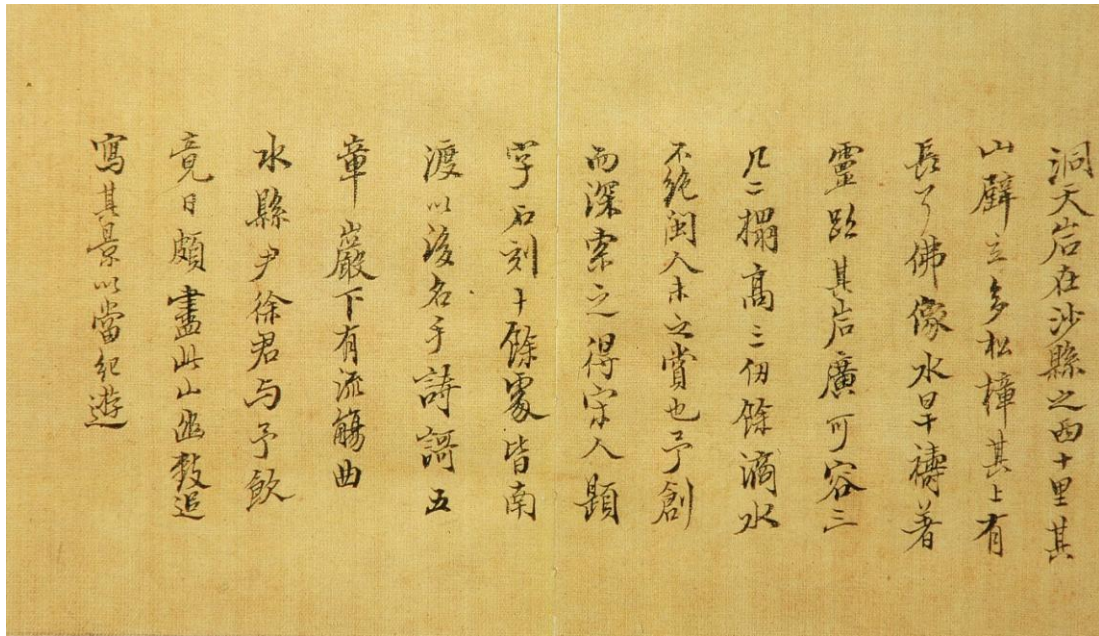 洞天岩在沙縣之西十里其
山壁立多松樟其上有
長耳佛像水旱禱著
靈跡其岩廣可容三
几二榻高三仞餘滴水
不絕閩人未之賞也予創
而深索之得宋人題
字石刻十餘處皆南
渡以後名手詩謌五
章巖下有流觴曲
水縣尹徐君与予飲
竟日頗盡此山幽致追
寫其景以當紀遊